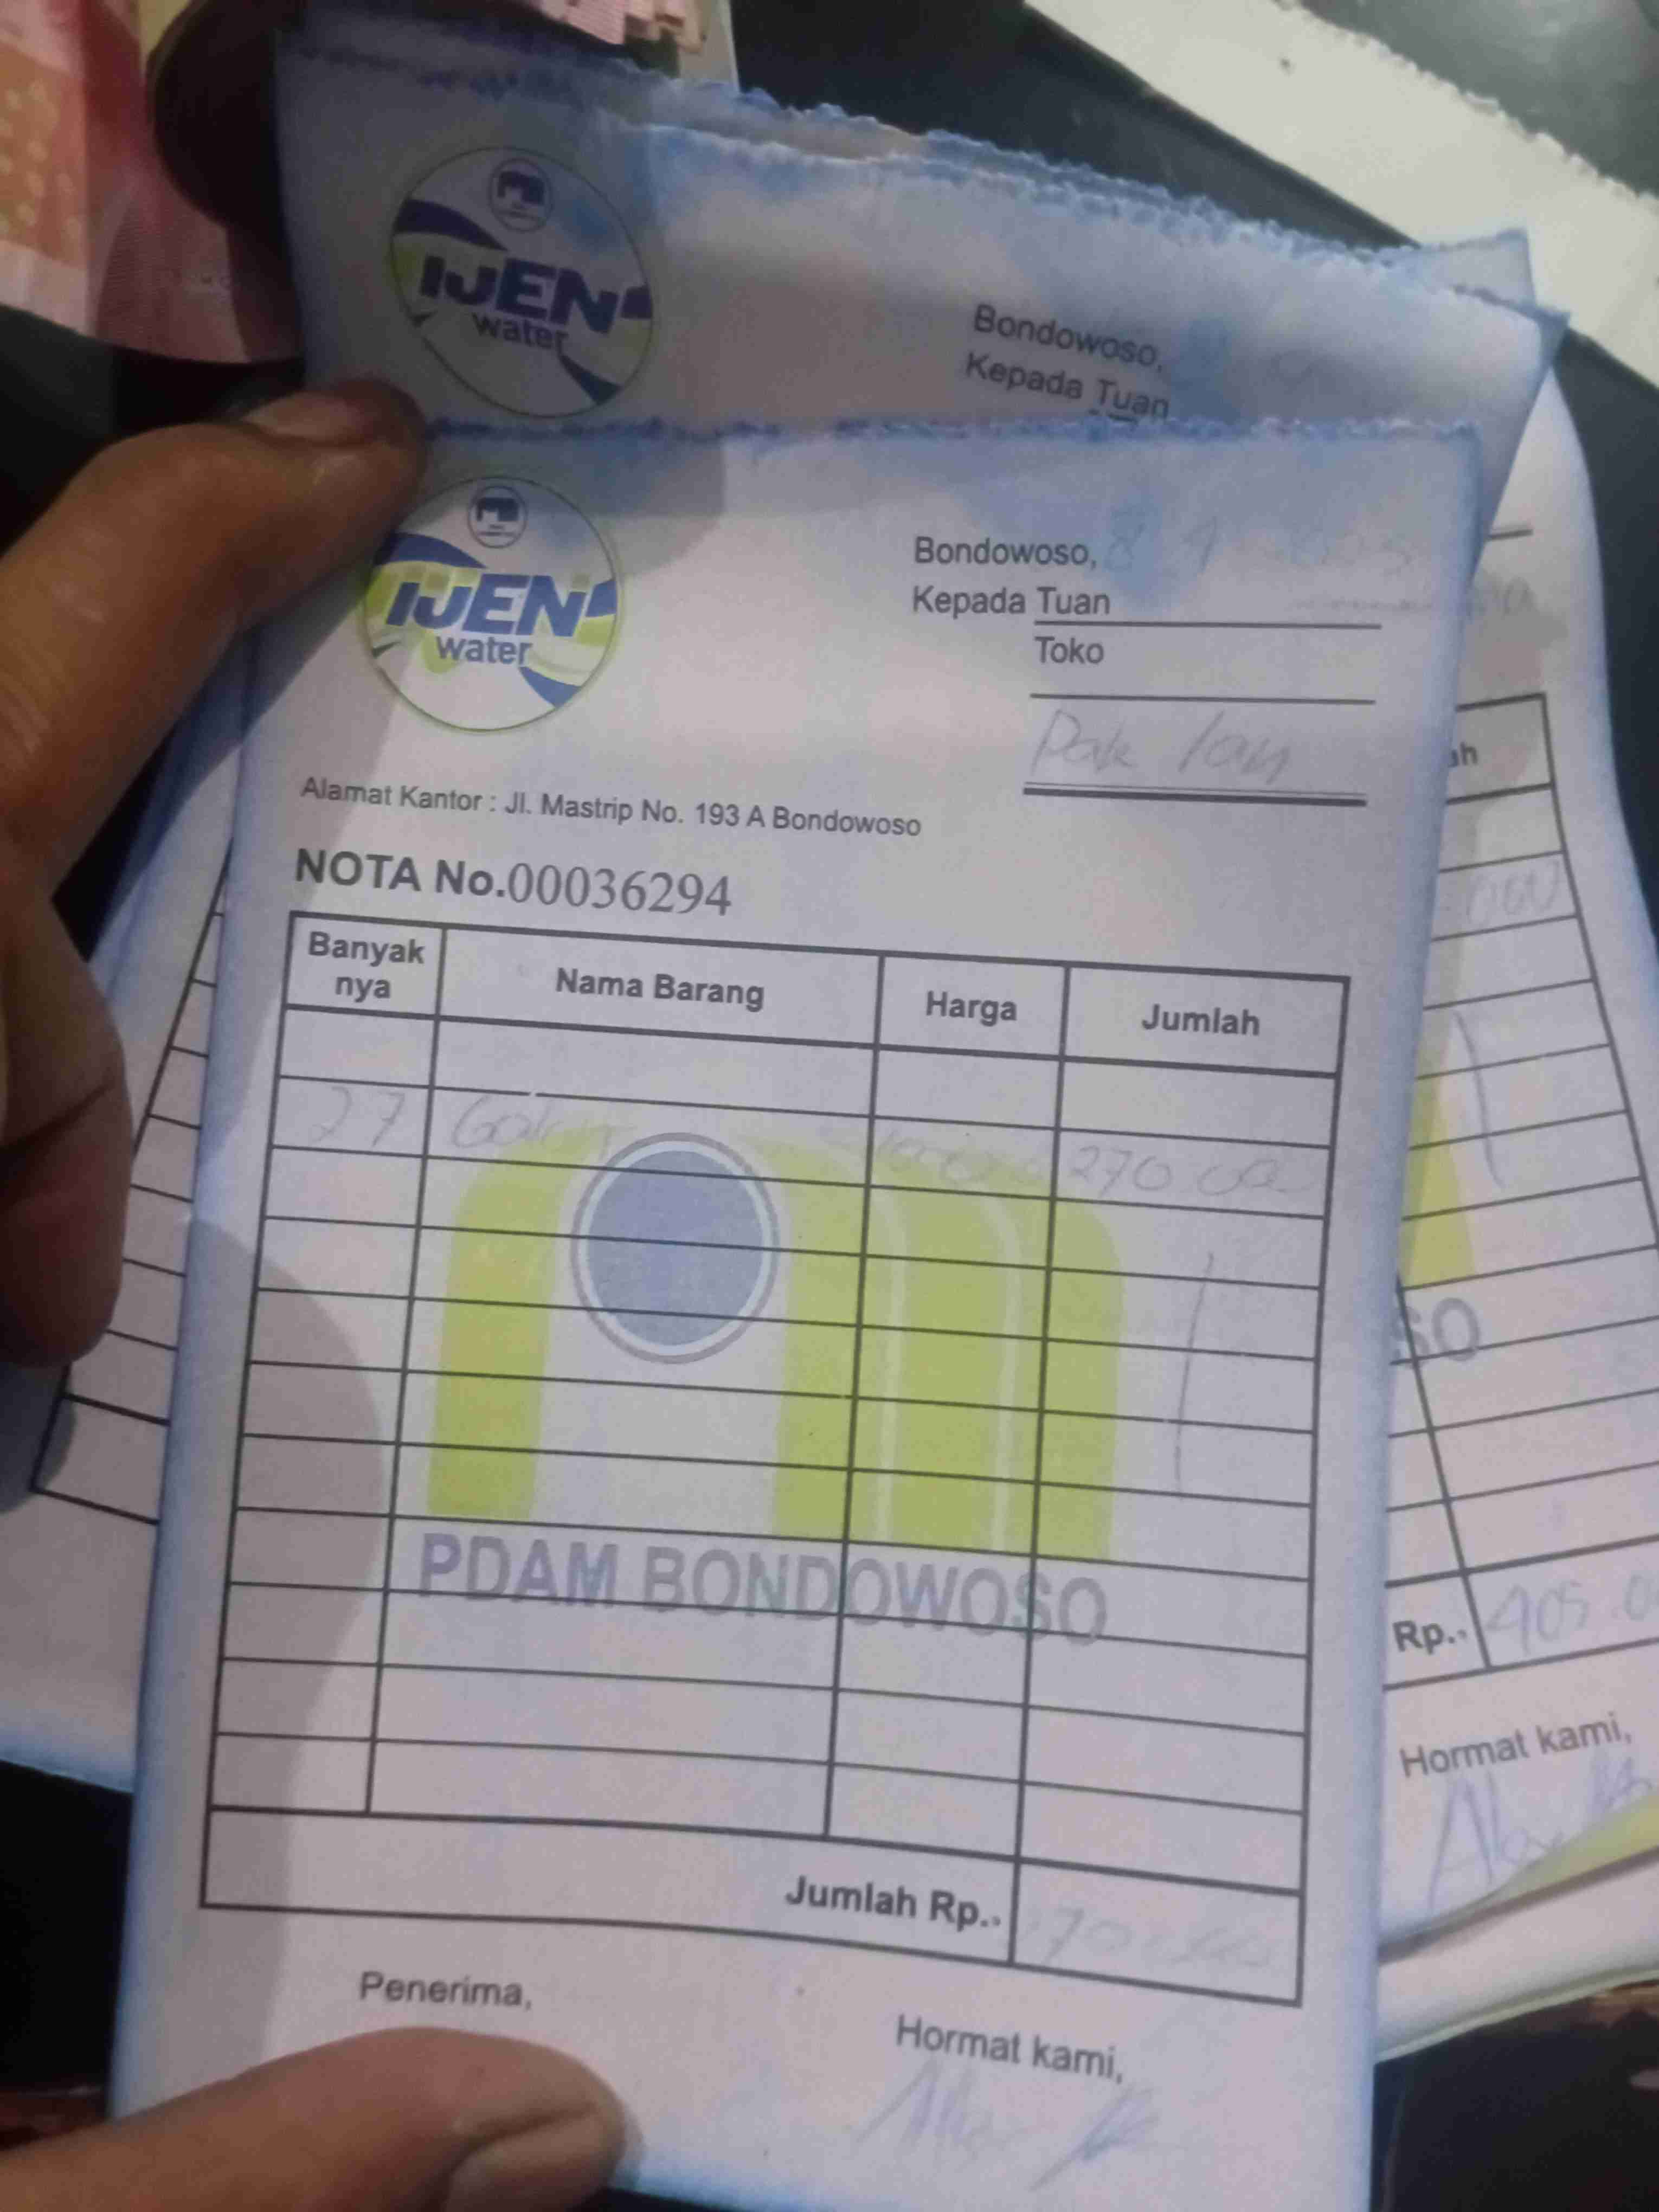 IJEN
water
Bondowoso,
Kepada Tuan
IJEN
water
Bondowoso, 8
Kepada Tuan
Toko
Pak Ian
Alamat Kantor : Jl. Mastrip No. 193 A Bondowoso
NOTA No.00036294
Banyak nya Nama Barang Harga Jumlah
27 Galon 270.000
PDAM BONDOWOSO
Jumlah Rp.-
Penerima,
Hormat kami,
ah
000
SO
Rp.- 405.0
Hormat kami,